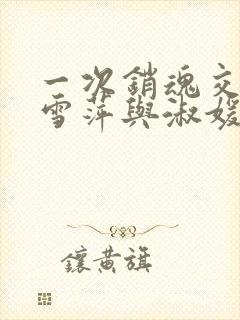 一次銷魂交
雪萍與淑媛
鑲黃旗